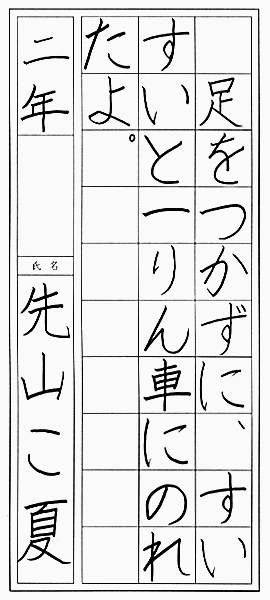 足をつかずに、すい
すいと一りん車にのれ
たよ。
二年
氏名
先山こ夏